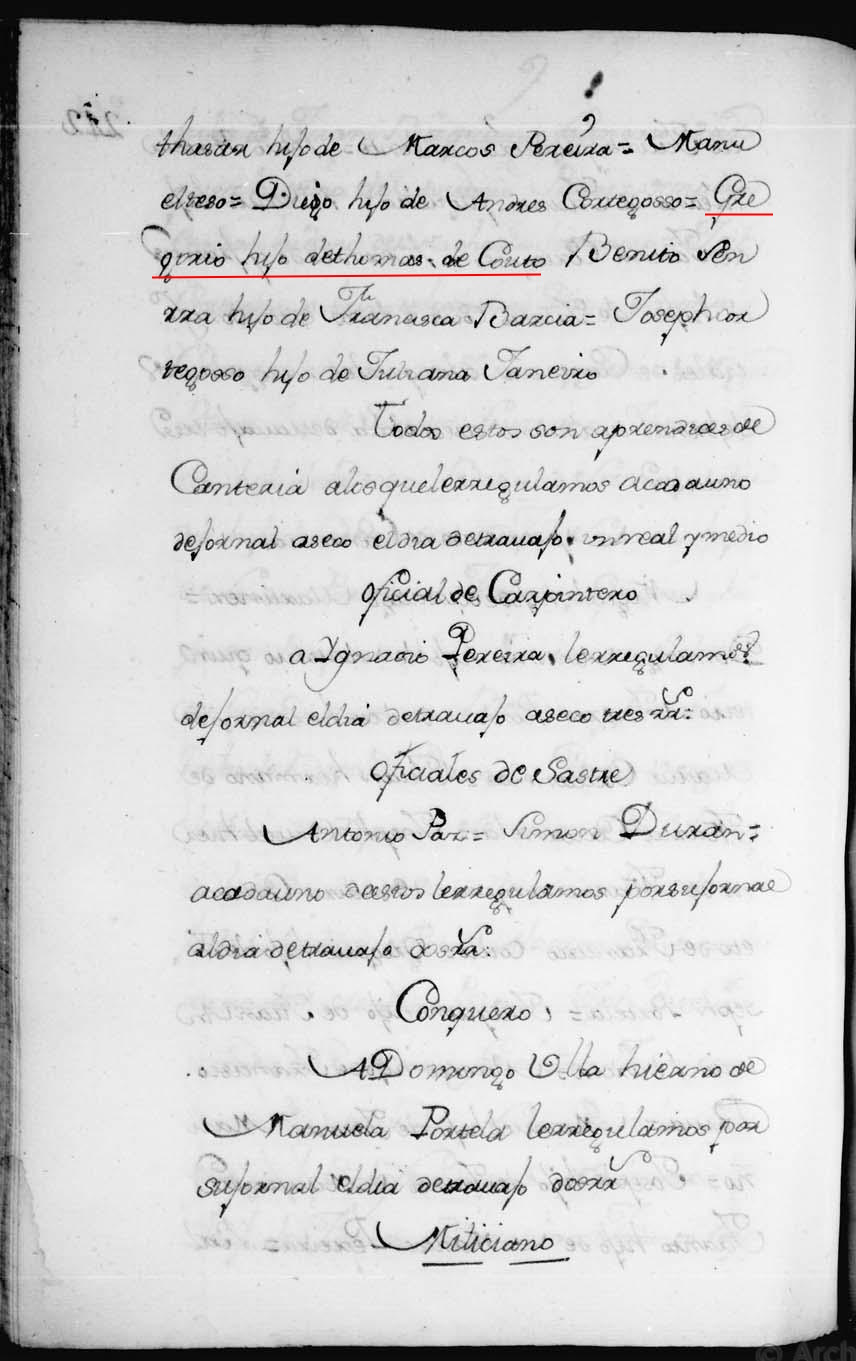 thasar hijo de Marcos Pereira= Manu
el reso= Diego hijo de Andres Cortegosso= Gre
gorio hijo dethomas de Couto Benito Pen
rra hijo de Francisca Barcia= Joseph cor
tegosso hijo de Juliana Janeiro
Todos estos son aprendices de
Canteria alosquelerregulamos acadauno
dejornal aseco eldia detrauajo un real y medio
oficial de Carpintero
a Ygnacio Pereira lerregulamos
dejornal eldia detrauajo aseco tres rrs:
oficiales de Sastre
Antonio Paz= Simon Duran=
acadauno deestos lerregulamos porsujornal
aldia detrauajo dosrrs:
Conquero
A Domingo Ulla hierno de
Manuela Portela lerregulamos por
sujornal eldia detrauajo dosrrs
Miliciano
© Arch